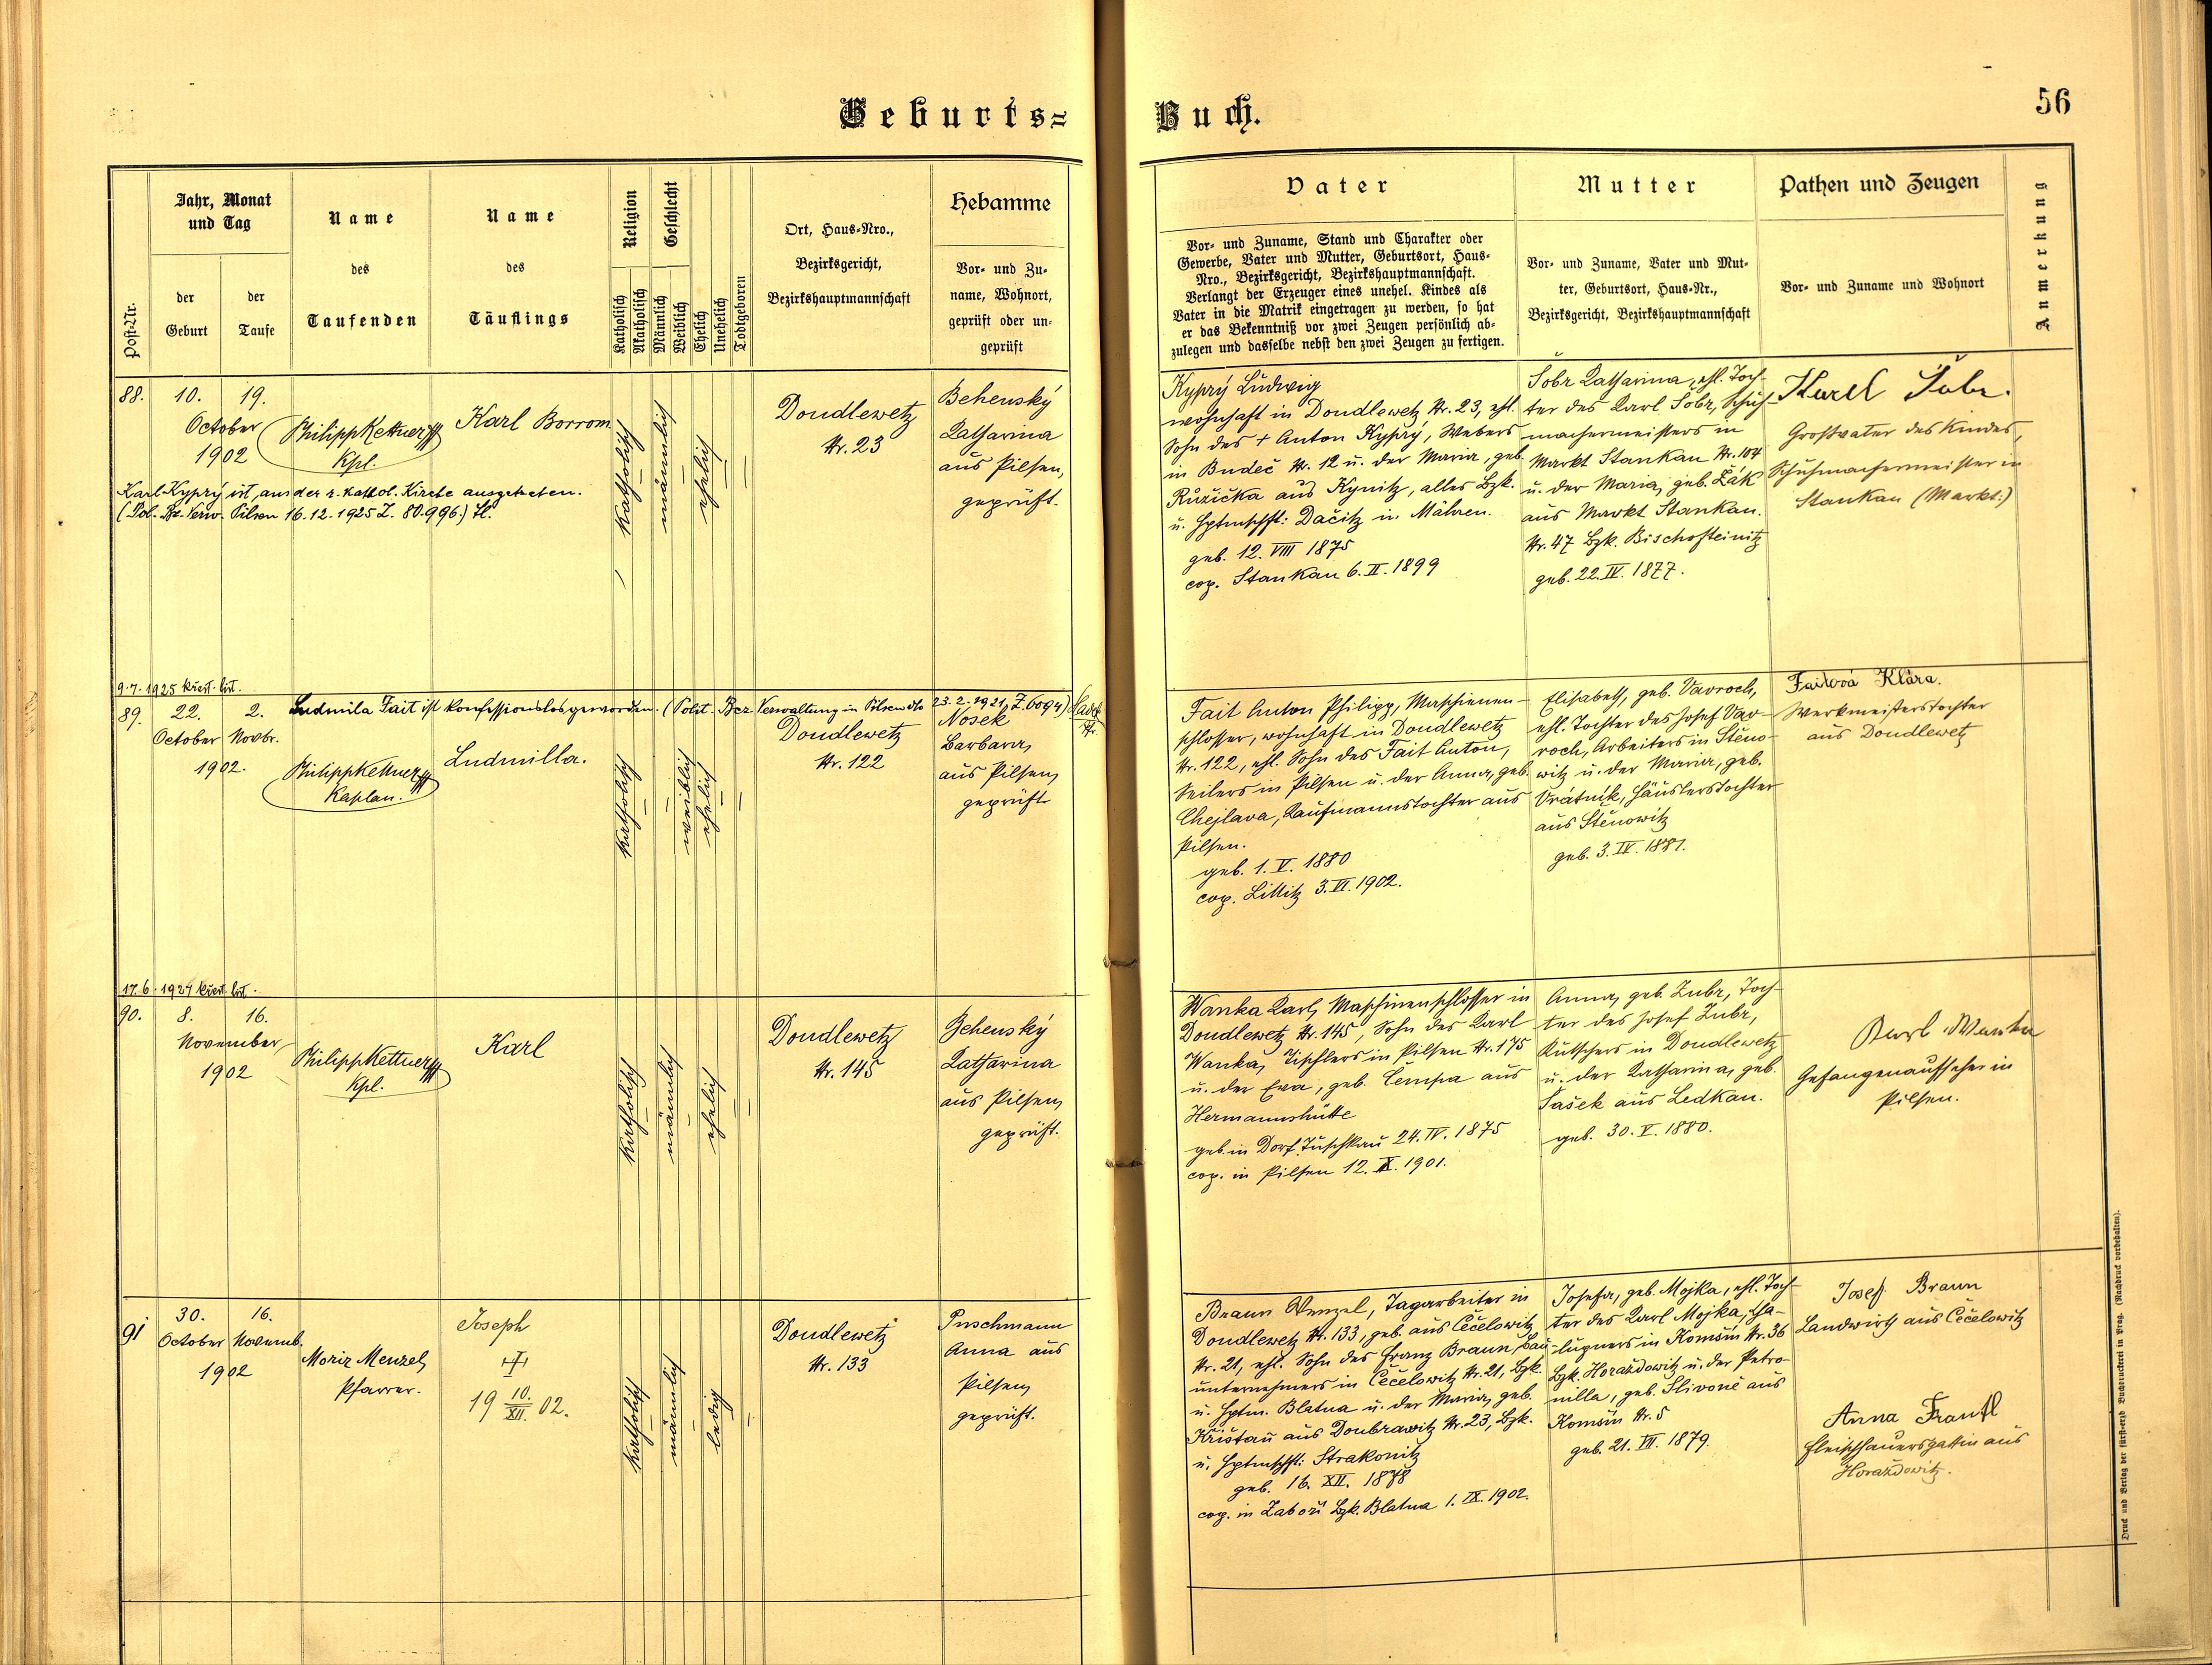 Geburts=
Buch.
56
Post-Nr.
Jahr, Monat
und Tag
der
Geburt
der
Taufe
Name
des
Taufenden
Name
des
Täuflings
Religion
Katholisch
Akatholisch
Geschlecht
Männlich
Weiblich
Ehelich
Unehelich
Todtgeboren
Ort, Haus-Nro.,
Bezirksgericht,
Bezirkshauptmannschaft
Hebamme
Vor- und Zu-
name, Wohnort,
geprüft oder un-
geprüft
Vater
Vor- und Zuname, Stand und Charakter oder
Gewerbe, Vater und Mutter, Geburtsort, Haus-
Nro., Bezirksgericht, Bezirkshauptmannschaft.
Verlangt der Erzeuger eines unehel. Kindes als
Vater in die Matrik eingetragen zu werden, so hat
er das Bekenntniß vor zwei Zeugen persönlich ab-
zulegen und dasselbe nebst den zwei Zeugen zu fertigen.
Mutter
Vor- und Zuname, Vater und Mut-
ter, Geburtsort, Haus-Nr.,
Bezirksgericht, Bezirkshauptmannschaft
Pathen und Zeugen
Vor- und Zuname und Wohnort
Anmerkung
88.
10.
19.
October
1902
Philipp Kettner
Kpl.
Karl Borrom.
Karl Kyprý ist aus der r. kathol. Kirche ausgetreten.
(Pol. Bz. Verw. Pilsen 16.12.1925 Z. 80.996.)
katholisch
männlich
ehelich
Doudlewetz
Nr. 23
Behenský
Katharina
aus Pilsen,
geprüft.
Kyprý Ludwig
wohnhaft in Doudlewetz Nr. 23, ehl.
Sohn des + Anton Kyprý, Webers
in Budeč Nr. 12 u. der Maria, geb.
Růžička aus Kynitz, alles Bzk.
u. Hptmschft: Dačitz in Mähren.
geb. 12. VIII 1875
cop. Stankau 6. II. 1899
Šobr Katharina, ehl. Toch-
ter des Karl Šobr, Schuh-
machermeisters in
Markt Stankau Nr. 104
u. der Maria, geb. Žák
aus Markt Stankau.
Nr. 47 Bzk. Bischofteinitz
geb. 22. IV. 1877.
Karel Šobr.
Großvater des Kindes,
Schuhmachermeister in
Stankau (Markt.)
9.7.1925 křest. list.
89.
22.
2.
October Novbr.
1902.
Ludmila Fait ist konfessionslos geworden. (Polit. Bez. Verwaltung in Pilsen dto 23.2.1921, Z. 6094)
Philipp Kettner
Kaplan.
Ludmilla.
katholisch
weiblich
ehelich
Doudlewetz
Nr. 122
Nosek
Barbara,
aus Pilsen,
geprüft
Fait Anton Philipp, Maschinen-
schlosser, wohnhaft in Doudlewetz
Nr. 122, ehl. Sohn des Fait Anton,
Seilers in Pilsen u. der Anna, geb.
Chejlava, Kaufmannstochter aus
Pilsen.
geb. 1. V. 1880
cop. Littitz 3. VI. 1902.
Elisabeth, geb. Vavroch,
ehl. Tochter des Josef Vav-
roch, Arbeiters in Štěno-
witz u. der Maria, geb.
Vrátník, Häuslerstochter
aus Štěnowitz
geb. 3. IV. 1881.
Faitová Klára.
Werkmeisterstochter
aus Doudlewetz
17.6.1924 křest. list.
90.
8.
16.
November
1902
Philipp Kettner
Kpl.
Karl
katholisch
männlich
ehelich
Doudlewetz
Nr. 145
Behenský
Katharina
aus Pilsen,
geprüft.
Wanka Karl, Maschinenschlosser in
Doudlewetz Nr. 145, Sohn des Karl
Wanka, Tischlers in Pilsen Nr. 175
u. der Eva, geb. Čempa aus
Hermannshütte
geb. in Dorf Tuschkau 24. IV. 1875
cop. in Pilsen 12. X. 1901.
Anna, geb. Zubr, Toch-
ter des Josef Zubr,
Kutschers in Doudlewetz
u. der Katharina, geb.
Šašek aus Ledkau.
geb. 30. V. 1880.
Karl Wanka
Gefangenaufseher in
Pilsen.
91
30.
16.
October Novemb.
1902
Moriz Menzel,
Pfarrer.
Joseph
19 10./XII. 02.
katholisch
männlich
ledig
Doudlewetz
Nr. 133
Puschmann
Anna aus
Pilsen,
geprüft.
Braun Wenzel, Tagarbeiter in
Doudlewetz Nr. 133, geb. aus Čečelowitz
Nr. 21, ehl. Sohn des Franz Braun, Bau-
unternehmers in Čečelowitz Nr. 21, Bzk.
u. Hptm. Blatna u. der Maria, geb.
Křišťan aus Doubrawitz Nr. 23, Bzk.
u. Hptmschft: Strakonitz
geb. 16. XII. 1878
cop. in Zaboří Bzk. Blatna 1. IX. 1902.
Josefa, geb. Mojka, ehl. Toch-
ter des Karl Mojka, Cha-
lupners in Komšín Nr. 36
Bzk. Horažďowitz u. der Petro-
nilla, geb. Slivoně aus
Komšín Nr. 5
geb. 21. VII. 1879.
Josef Braun
Landwirth aus Čečelowitz
Anna Frantl
Fleischhauersgattin aus
Horažďowitz.
Druck und Verlag der fürsterzb. Buchdruckerei in Prag. (Nachdruck vorbehalten).